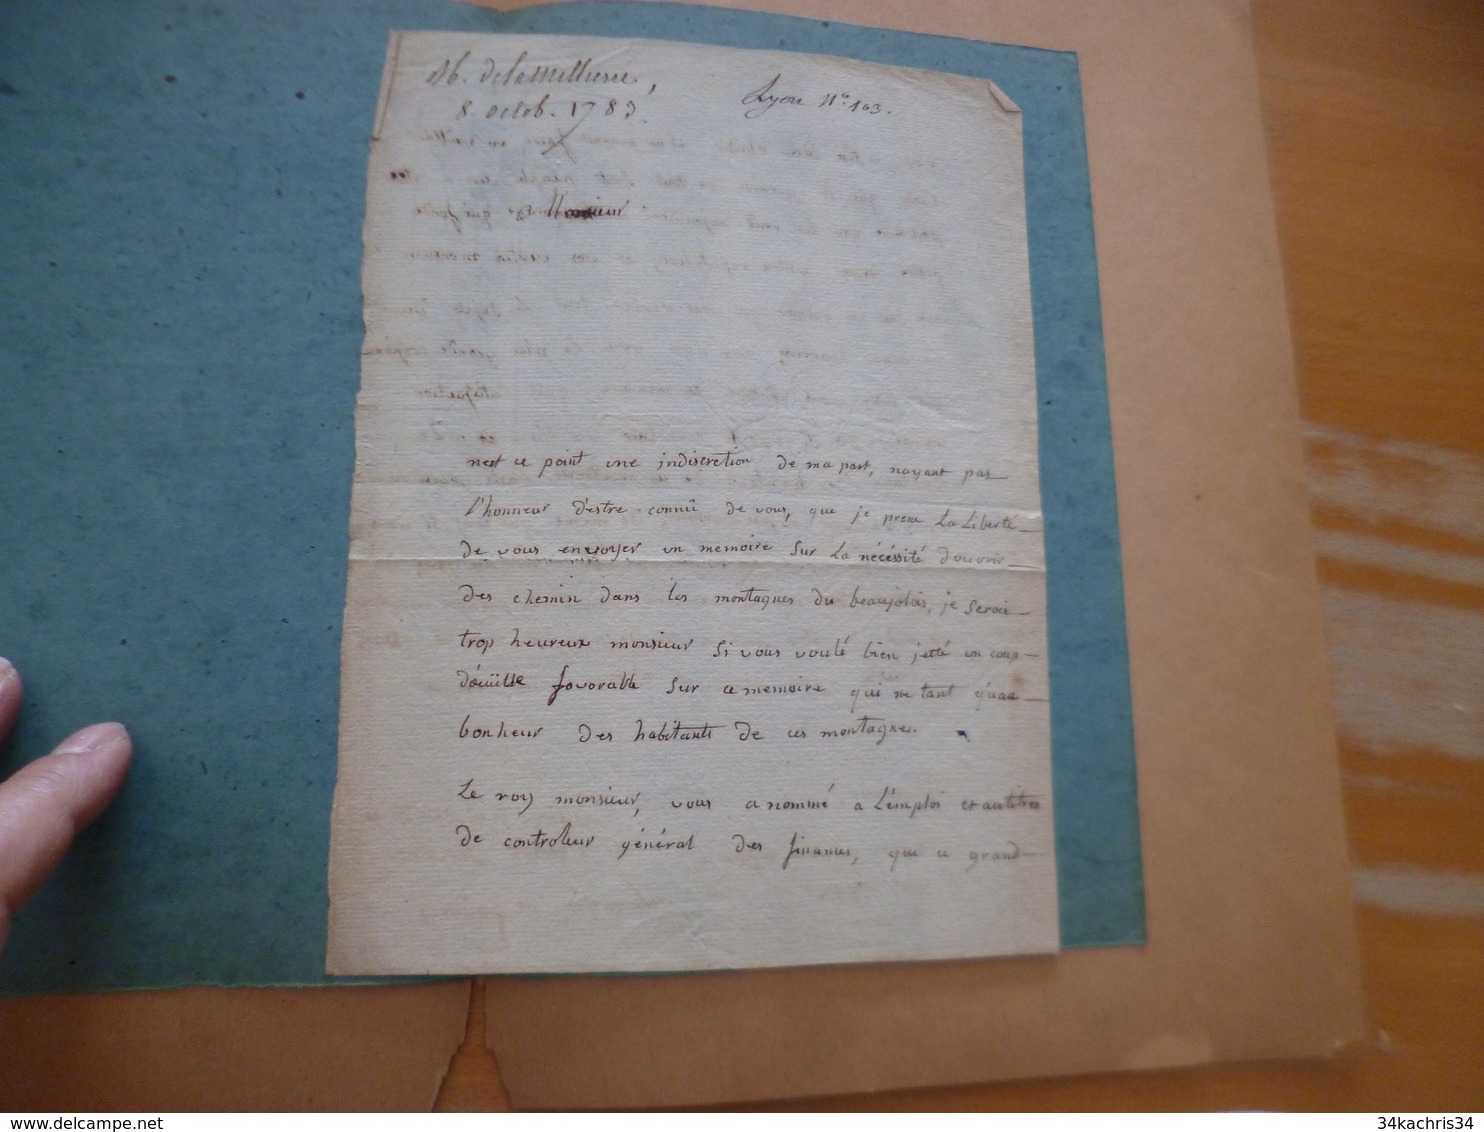 M. de la Milliere,
8 octob. 1783.
Lyon N.º 103.
Monsieur
nest ce point une indiscretion de ma part, nayant pas
l'honneur d'estre connû de vous, que je prene La Liberté
de vous envoyer un memoire sur La nécéssité d'ouvrir
des chemin dans les montagnes du beaujolois, je serois
trop heureux monsieur si vous voulé bien jetté un coup
d'oëüille favorable sur ce memoire qui ne tant qu'au
bonheur des habitants de ces montagnes.
Le roy monsieur, vous a nommé a L'emploi et au titres
de controleur général des finances, que ce grand
delcampe.net
34kachris34